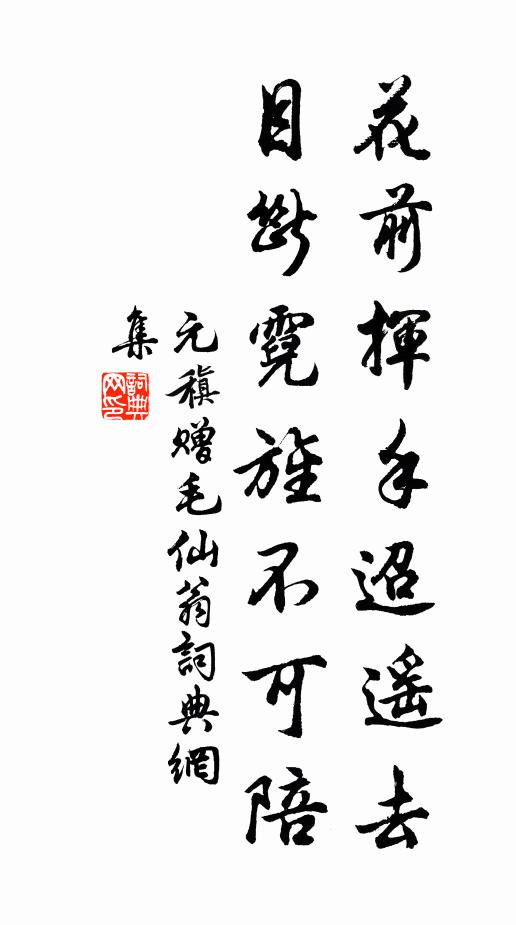 花前揮手迢遥去
目斷霓旌不可陪
元稹贈毛仙翁詞典網
集
詞典
网印